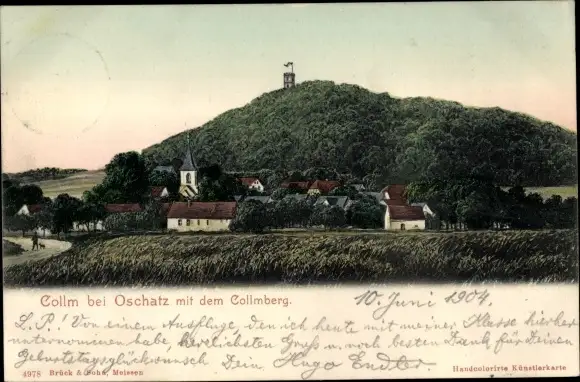 Collm bei Oschatz mit dem Collmberg.
10. Juni 1904.
L. P.! Von einem Ausfluge, den ich heute mit meiner Klasse hierher
unternommen habe, herzlichsten Gruß u. noch besten Dank für Deinen
Geburtstagsglückwunsch Dein Hugo Endter.
4978 Brück & Sohn, Meissen
Handcolorirte Künstlerkarte